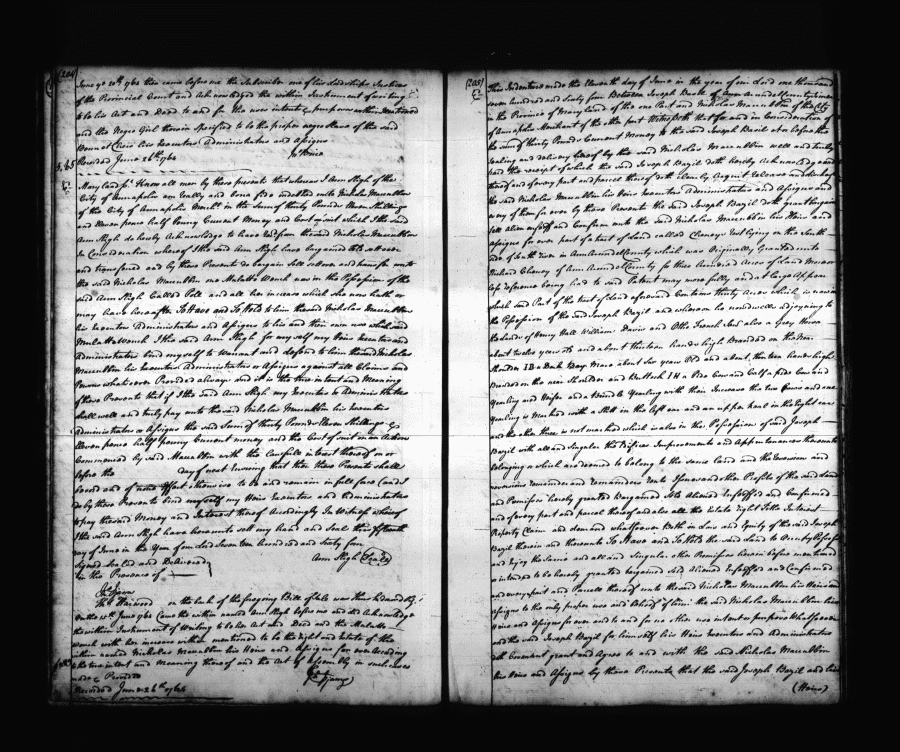 (204)
June ye 20th 1764 then came before me the Subscriber one of his Lordships Justices
of the Provincial Court and Acknowledged the within Instrument of writing
to be his Act and Deed to and for the uses intents & purposes within mentioned
and the Negro Girl therein Specified to be the proper negro Slave of the said
his Executors Administrators and Assigns
Recorded June 26th 1764
Maryland ss. Know all men by these presents that whereas I Ann Sligh of the
City of Annapolis am really and bona fide indebted unto Nicholas Maccubbin
of the City of Annapolis Mercht in the Sum of thirty Pounds Eleven Shillings
and Eleven pence half Penny Current Money and Cost of suit which I the said
Ann Sligh do hereby Acknowledge to have had from the said Nicholas Maccubbin
In Consideration whereof I the said Ann Sligh have bargained sold set over
and transferred and by these Presents do bargain sell set over and transfer unto
the said Nicholas Maccubbin one Mulatto Wench now in the Possession of the
said Ann Sligh Called Poll and all her increase which she now hath or
may have hereafter To Have and To Hold to him the said Nicholas Maccubbin
his Executors Administrators and Assigns to his and their own use which said
Mulatto Wench I the said Ann Sligh for my self my Heirs Executors and
Administrators bind my self to Warrant and defend to him the said Nicholas
Maccubbin his Executors Administrators or Assigns against all Claims and
Persons whatsoever Provided always and it is the true intent and Meaning
of these Presents that if I the said Ann Sligh my Executors or Administrators
shall well and truly pay unto the said Nicholas Maccubbin his Executors
Administrators or Assigns the said Sum of thirty Pounds Eleven Shillings &
Eleven pence half penny Current money and the Cost of suit on an Action
Commenced by said Maccubbin with the Lawfull interest thereof on or
before the day of next Ensuing that then these Presents shall
be void and of none Effect otherwise to be and remain in full force and I
do by these Presents bind my self my Heirs Executors and Administrators
to pay the said Money and Interest thereof Accordingly In Witness whereof
I the said Ann Sligh have hereunto set my hand and Seal this fifteenth
day of June in the Year of our Lord Seventeen hundred and Sixty four
Signed Sealed and Delivered Ann Sligh (Seal)
in the Presence of
on the back of the foregoing Bill of Sale was thus Endorsed Viz
On the 15th June 1764 Came the within named Ann Sligh before me and did Acknowledge
the within Instrument of Writing to be her Act and Deed and the Mulatto
wench with her increase within mentioned to be the Right and Estate of the
within named Nicholas Maccubbin his Heirs and Assigns for ever According
to the true intent and Meaning thereof and the Act of Assembly in such cases
made & Provided
Recorded June 26th 1764
(205)
This Indenture made the Eleventh day of June in the year of our Lord one thousand
seven hundred and Sixty four Between Joseph Bazil of Ann Arundel County
in the Province of Maryland of the one Part and Nicholas Maccubbin of the City
of Annapolis Merchant of the other part Witnesseth that for and in Consideration of
the sum of thirty Pounds Current Money to the said Joseph Bazil at or before the
sealing and delivery hereof by the said Nicholas Maccubbin well and truly
paid the receipt of which the said Joseph Bazil doth hereby Acknowledge and
thereof and of every part and parcel thereof doth clearly Acquit release and discharge
the said Nicholas Maccubbin his Heirs Executors Administrators and Assigns and
every of them for ever by these Presents the said Joseph Bazil doth grant bargain
sell alien enfeoff and Confirm unto the said Nicholas Maccubbin his Heirs and
Assigns for ever part of a tract of Land called Cheneys Rest lying on the South
side of South River in Ann Arundel County which was Originally Granted unto
Richard Cheney of Ann Arundel County for three hundred Acres of Land
reference being had to said Patent may more fully and at large Appear
which said Part of the tract of Land aforesaid Contains thirty Acres which is now in
the Possession of the said Joseph Bazil and whereon he now dwells adjoyning to
the Lands of Henry Hall William Davis and Otho French and also a Grey Horse
about twelve years old and about thirteen hands high Branded on the Near
Shoulder IB a Dark Bay Mare about Six years Old and about thirteen hands high
Branded on the near Shoulder and Buttock IH a Red Cow and Calf a pide Cow and
Yearling and Heifer and a Brindle Yearling with their Increase the two Cows and one
Yearling is Marked with a Slit in the left ear and an upper keel in the Right ear
and the other three is not marked which is also in the Possession of said Joseph
Bazil with all and Singular the Edifices Improvements and Appurtenances thereunto
belonging or which are deemed to belong to the same Land and the Reversion and
reversions remainder and remainders Rents Issues and other Profits of the said Land
and Premisses hereby granted Bargained Sold Aliened Enfeoffed and Confirmed
and of every part and parcel thereof and also all the Estate right Title Interest
Property Claim and demand whatsoever Both in Law and Equity of the said Joseph
Bazil therein and thereunto To Have and To Hold the said Land to Occupy Possess
and Enjoy the Same and all and Singular other Premisses herein before mentioned
or intended to be hereby granted bargained sold Aliened Enfeoffed and Confirmed
and every part and Parcell thereof unto the said Nicholas Maccubbin his Heirs and
Assigns to the only proper use and Behoof of him the said Nicholas Maccubbin his
Heirs and Assigns for ever and to and for no other use intent or purpose whatsoever
and the said Joseph Bazil for him self his Heirs Executors and Administrators
doth Covenant grant and Agree to and with the said Nicholas Maccubbin
his Heirs and Assigns by these Presents that the said Joseph Bazil and his
(Heirs)